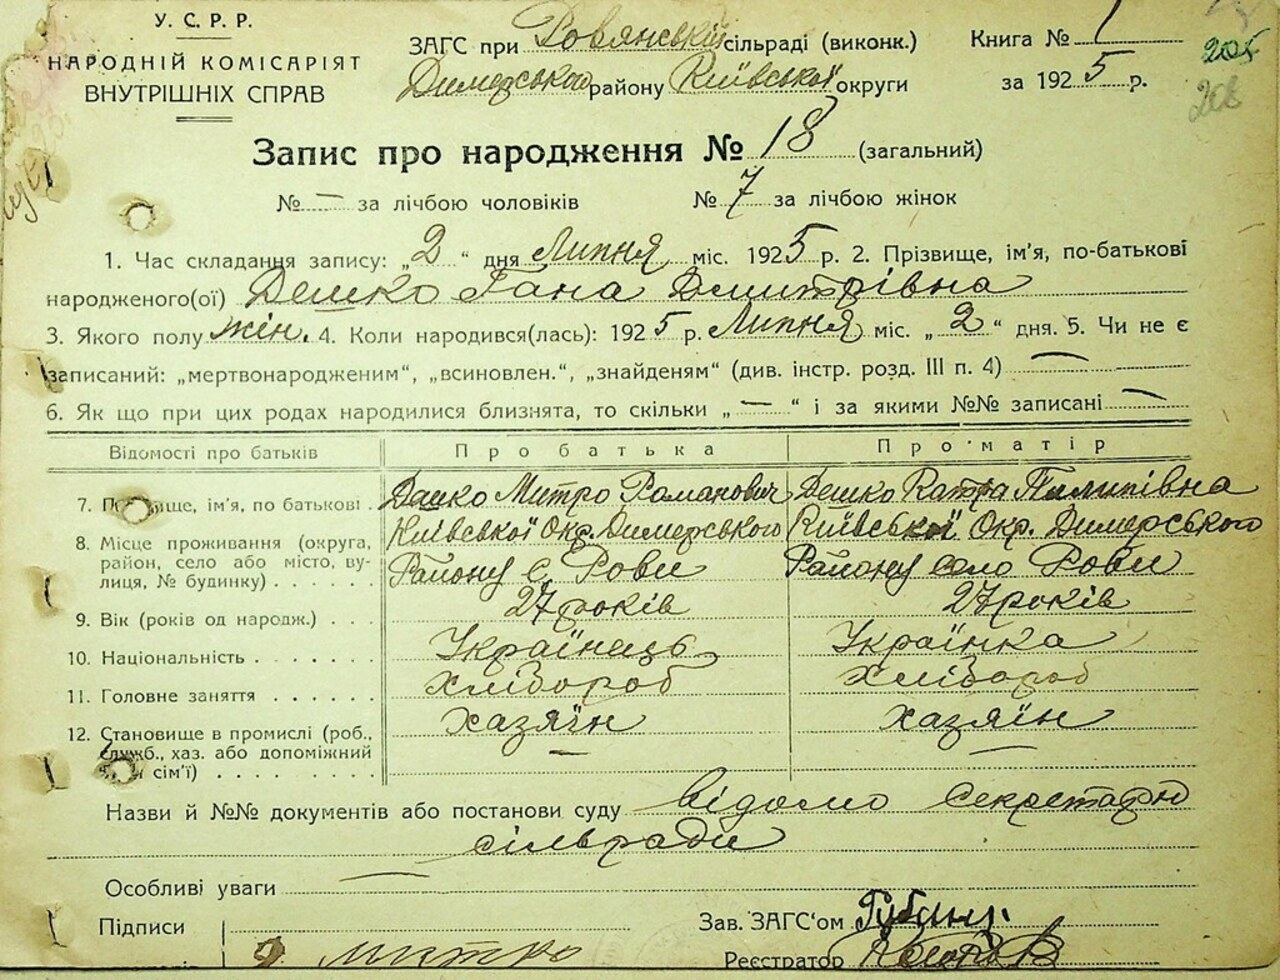 У. С. Р. Р.
НАРОДНІЙ КОМІСАРІЯТ
ВНУТРІШНІХ СПРАВ
ЗАГС при Ровянській сільраді (виконк.)
Димерського району Київської округи
Книга № 1
за 1925 р.
205
208
Запис про народження № 18 (загальний)
№ — за лічбою чоловіків № 7 за лічбою жінок
1. Час складання запису: „2“ дня Липня міс. 1925 р. 2. Прізвище, ім'я, по-батькові
народженого(ої) Дешко Гана Дмитрівна
3. Якого полу жін. 4. Коли народився(лась): 1925 р. Липня міс. „2“ дня. 5. Чи не є
записаний: „мертвонародженим“, „всиновлен.“, „знайденям“ (див. інстр. розд. III п. 4) —
6. Як що при цих родах народилися близнята, то скільки „—“ і за якими №№ записані —
Відомості про батьків Про батька Про матір
7. ім'я, по батькові Дешко Митро Романович Дешко Катра Пилипівна
8. Місце проживання (округа, район, село або місто, вулиця, № будинку) Київської Окр. Димерського Київської Окр. Димерського
Району с. Рови Району село Рови
9. Вік (років од народж.) 27 років 27 років
10. Національність Українець Українка
11. Головне заняття Хлібороб Хлібороб
12. Становище в промислі (роб., служб., хаз. або допоміжний сім'ї) хазяїн хазяїн
Назви й №№ документів або постанови суду відомо секретарю
сільради
Особливі уваги —
Підписи Зав. ЗАГС'ом
Митро Реєстратор